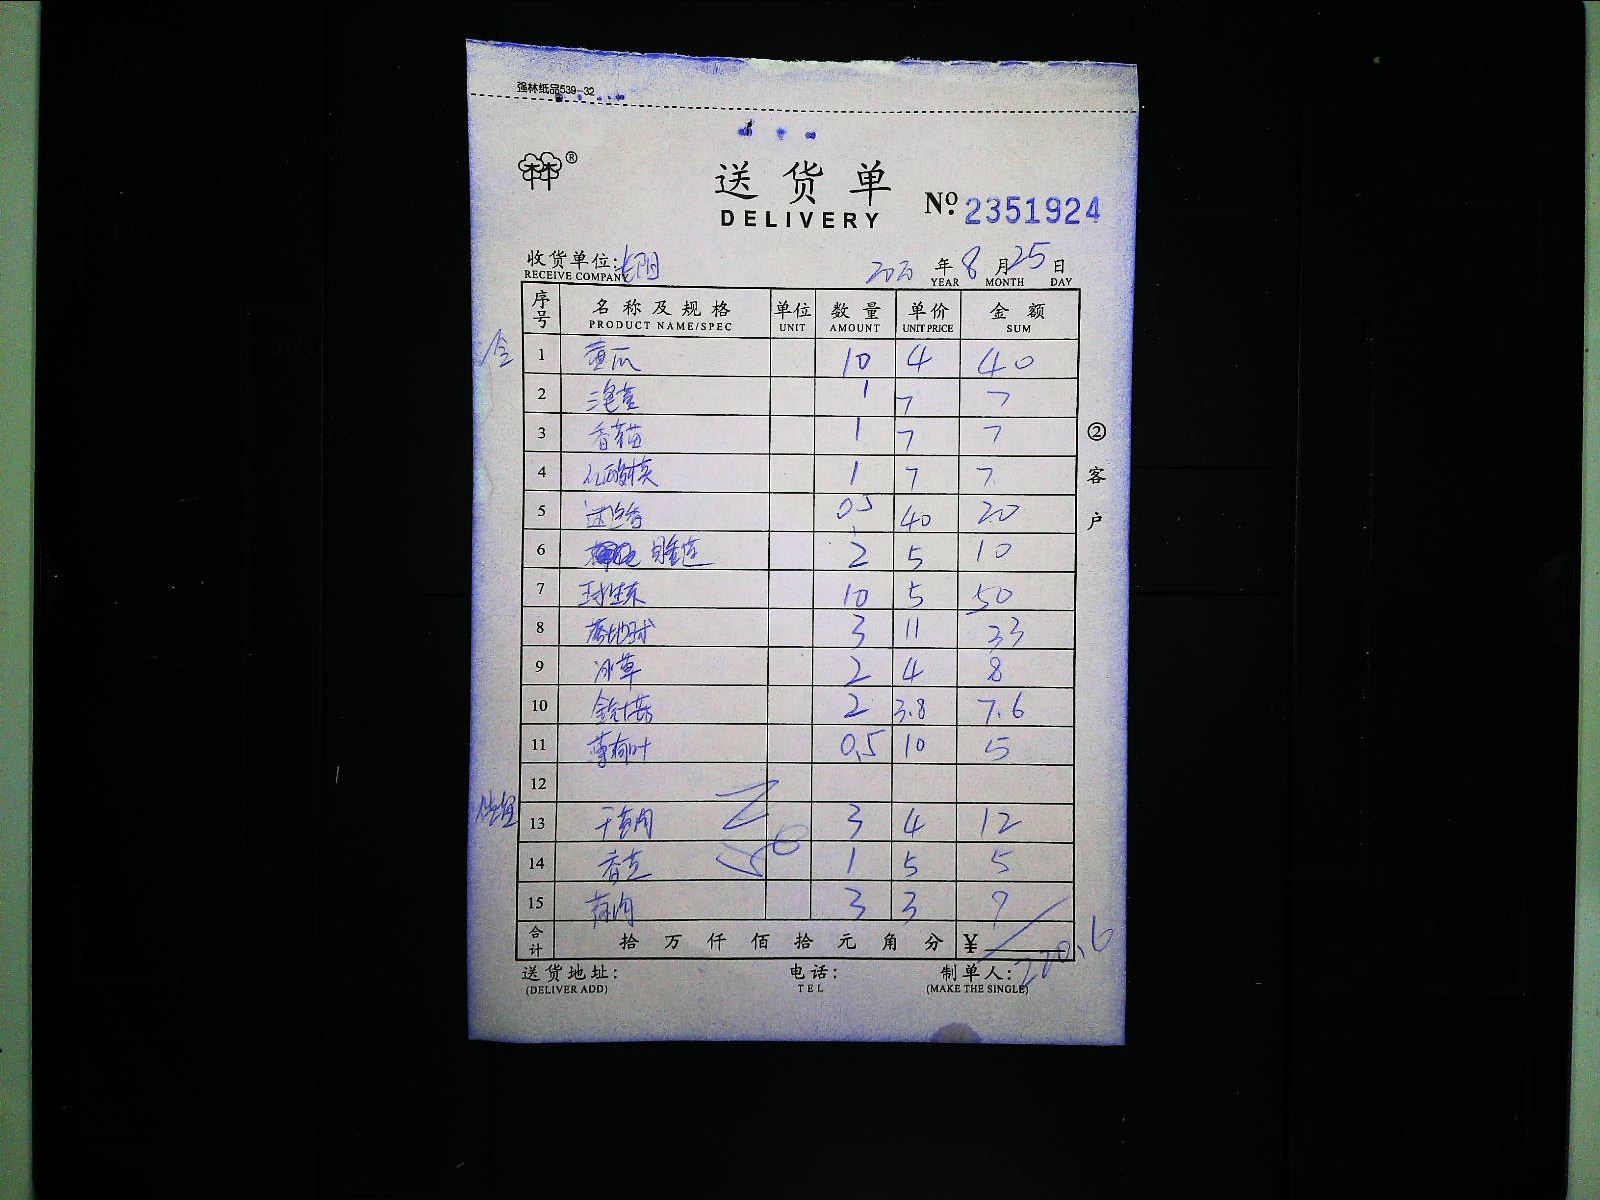 强林纸品539-32
®
送货单
DELIVERY
№ 2351924
收货单位:
RECEIVE COMPANY
2020年8月25日
YEAR MONTH DAY
序号 名称及规格 单位 数量 单价 金额
PRODUCT NAME/SPEC UNIT AMOUNT UNIT PRICE SUM
1 黄瓜 10 4 40
2 1 7 7
3 香茅 1 7 7
4 1 7 7
5 迷迭香 0.5 40 20
6 2 5 10
7 球生菜 10 5 50
8 3 11 33
9 冰草 2 4 8
10 金针菇 2 3.8 7.6
11 薄荷叶 0.5 10 5
12
13 3 4 12
14 香芹 1 5 5
15 3 3 9
56
合计 拾万仟佰拾元角分 ¥ 220.6
②客户
送货地址:
(DELIVER ADD)
电话:
TEL
制单人:
(MAKE THE SINGLE)